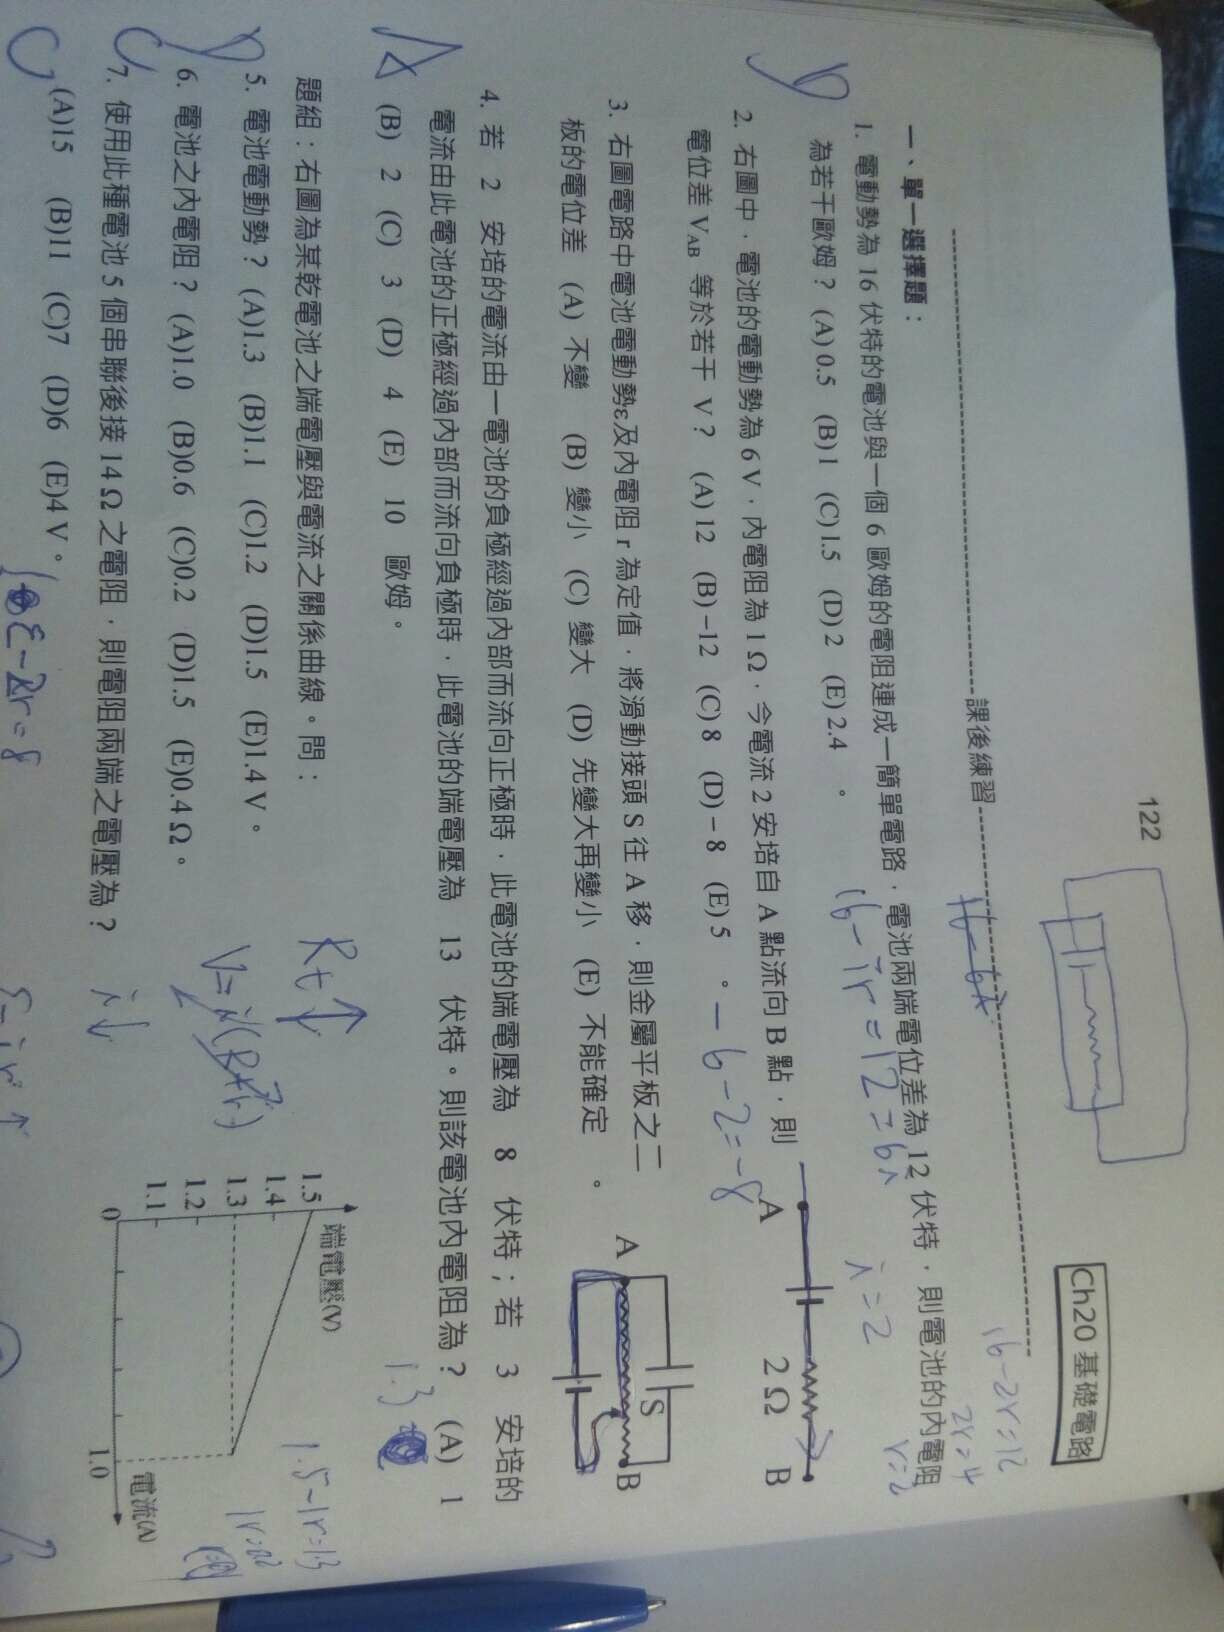 122
Ch20 基礎電路
課後練習
一、單一選擇題：
1. 電動勢為 16 伏特的電池與一個 6 歐姆的電阻連成一簡單電路，電池兩端電位差為 12 伏特，則電池的內電阻
為若干歐姆？ (A) 0.5 (B) 1 (C) 1.5 (D) 2 (E) 2.4 。
16-ir=12=6i
i=2
16-2r=12
2r=4
r=2
2. 右圖中，電池的電動勢為 6 V，內電阻為 1 Ω，今電流 2 安培自 A 點流向 B 點，則
電位差 VAB 等於若干 V？ (A) 12 (B) –12 (C) 8 (D) – 8 (E) 5 。
-6-2=-8
A 2 Ω B
3. 右圖電路中電池電動勢ε及內電阻 r 為定值，將滑動接頭 S 往 A 移，則金屬平板之二
板的電位差 (A) 不變 (B) 變小 (C) 變大 (D) 先變大再變小 (E) 不能確定 。
A S B
4. 若 2 安培的電流由一電池的負極經過內部而流向正極時，此電池的端電壓為 8 伏特；若 3 安培的
電流由此電池的正極經過內部而流向負極時，此電池的端電壓為 13 伏特。則該電池內電阻為？ (A) 1
(B) 2 (C) 3 (D) 4 (E) 10 歐姆。
題組：右圖為某乾電池之端電壓與電流之關係曲線。問：
5. 電池電動勢？ (A)1.3 (B)1.1 (C)1.2 (D)1.5 (E)1.4 V。
6. 電池之內電阻？ (A)1.0 (B)0.6 (C)0.2 (D)1.5 (E)0.4 Ω。
7. 使用此種電池 5 個串聯後接 14 Ω 之電阻，則電阻兩端之電壓為？
(A)15 (B)11 (C)7 (D)6 (E)4 V。
端電壓(V)
1.5
1.4
1.3
1.2
1.1
0
1.0
電流(A)
Rt↓
i↓
1.3
1.5-1r=1.3
ε-2r=8
ε-ir↑